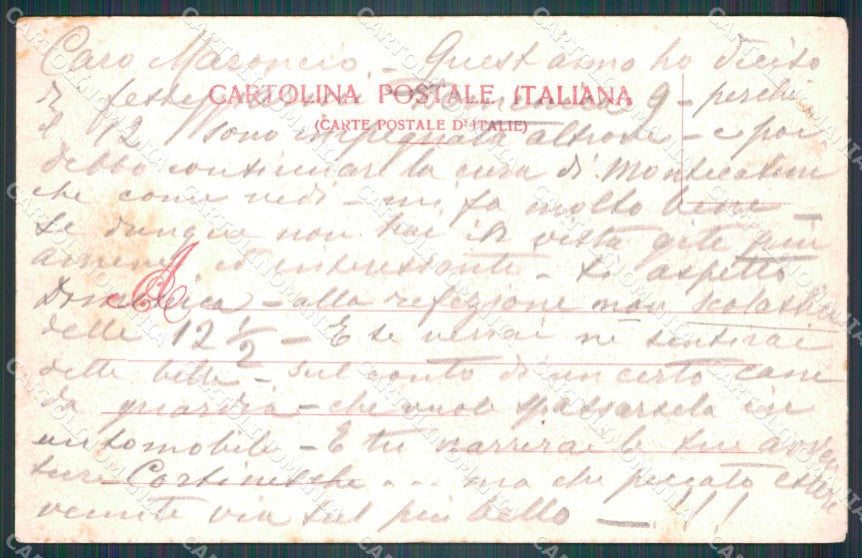 Caro Maroncio – Quest'anno ho deciso
di festeggiare Domenica 9 – perchè
CARTOLINA POSTALE ITALIANA
(CARTE POSTALE D'ITALIE)
il 12 sono impegnata altrove – e poi
debbo continuare la cura di Montecatini
che come vedi – mi fa molto bene –
Se dunque non hai in vista gite più
amene ed interessanti – ti aspetto
Domenica – alla refezione non scolastica
delle 12 1/2 – E se verrai ne sentirai
delle belle – sul conto di un certo cane
da guardia – che vuole spassarsela in
automobile – E tu narrerai le tue avven
ture Cortinesche ... ma che peccato essere
venute via sul più bello – !!!